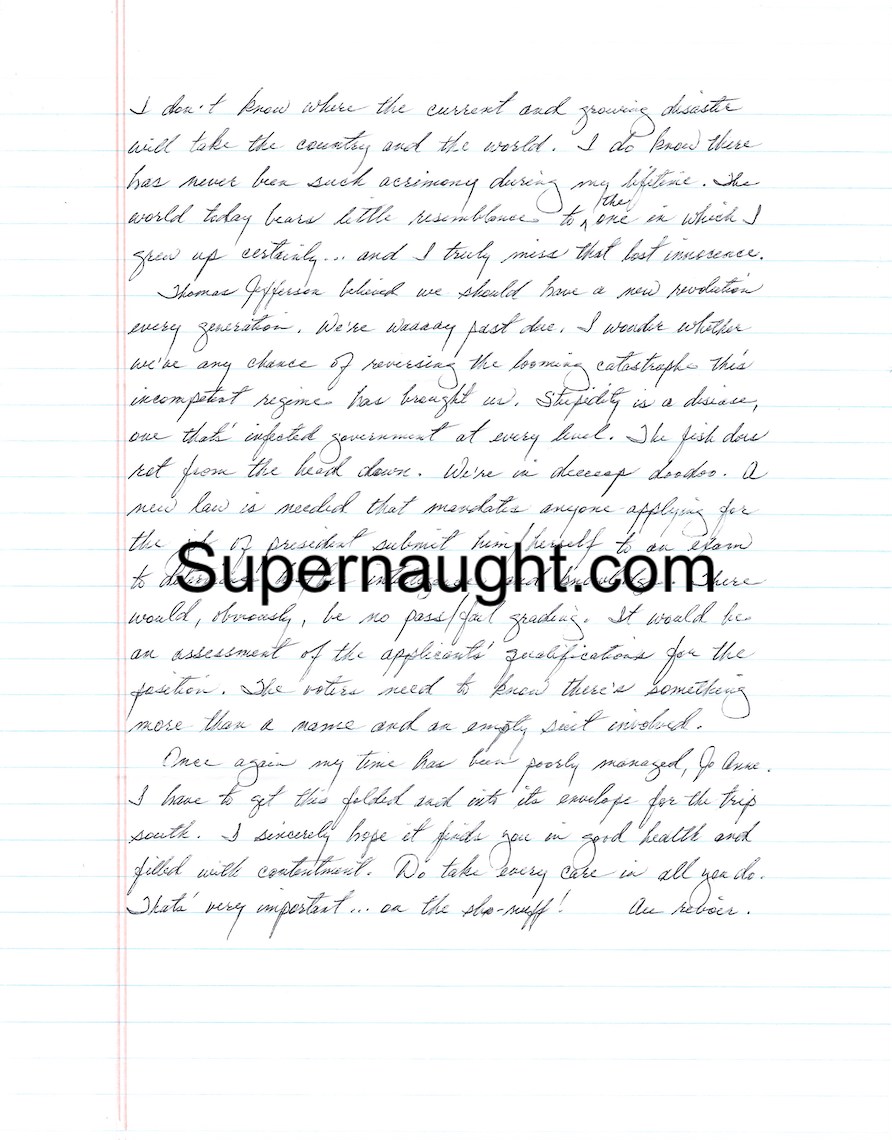 I don't know where the current and growing disaster
will take the country and the world. I do know there
has never been such acrimony during my lifetime. The
world today bears little resemblance to the one in which I
grew up certainly... and I truly miss that lost innocence.
Thomas Jefferson believed we should have a new revolution
every generation. We're waaaay past due. I wonder whether
we've any chance of reversing the looming catastrophe this
incompetent regime has brought us. Stupidity is a disease,
one thats' infected government at every level. The fish does
rot from the head down. We're in deeeeep doodoo. A
new law is needed that mandates anyone applying for
the job of president submit him/herself to an exam
to determine intelligence and knowledge. There
Supernaught.com
would, obviously, be no pass/fail grading. It would be
an assessment of the applicants' qualifications for the
position. The voters need to know there's something
more than a name and an empty suit involved.
Once again my time has been poorly managed, Jo Anne.
I have to get this folded and into its envelope for the trip
south. I sincerely hope it finds you in good health and
filled with contentment. Do take every care in all you do.
Thats' very important... on the sho-nuff! Au revoir.